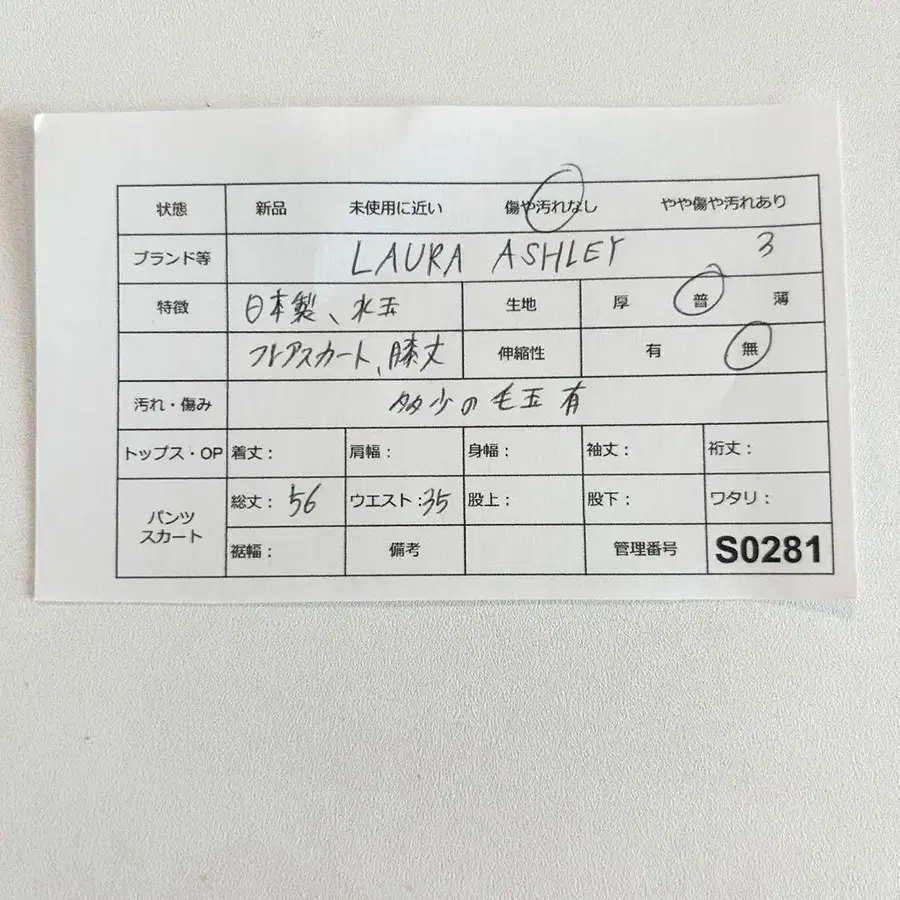 状態 新品 未使用に近い 傷や汚れなし やや傷や汚れあり
ブランド等 LAURA ASHLEY 3
特徴 日本製、水玉 生地 厚 普 薄
フレアスカート、膝丈 伸縮性 有 無
汚れ・傷み 多少の毛玉有
トップス・OP 着丈: 肩幅: 身幅: 袖丈: 裄丈:
パンツ スカート 総丈: 56 ウエスト:35 股上: 股下: ワタリ:
裾幅: 備考 管理番号 S0281